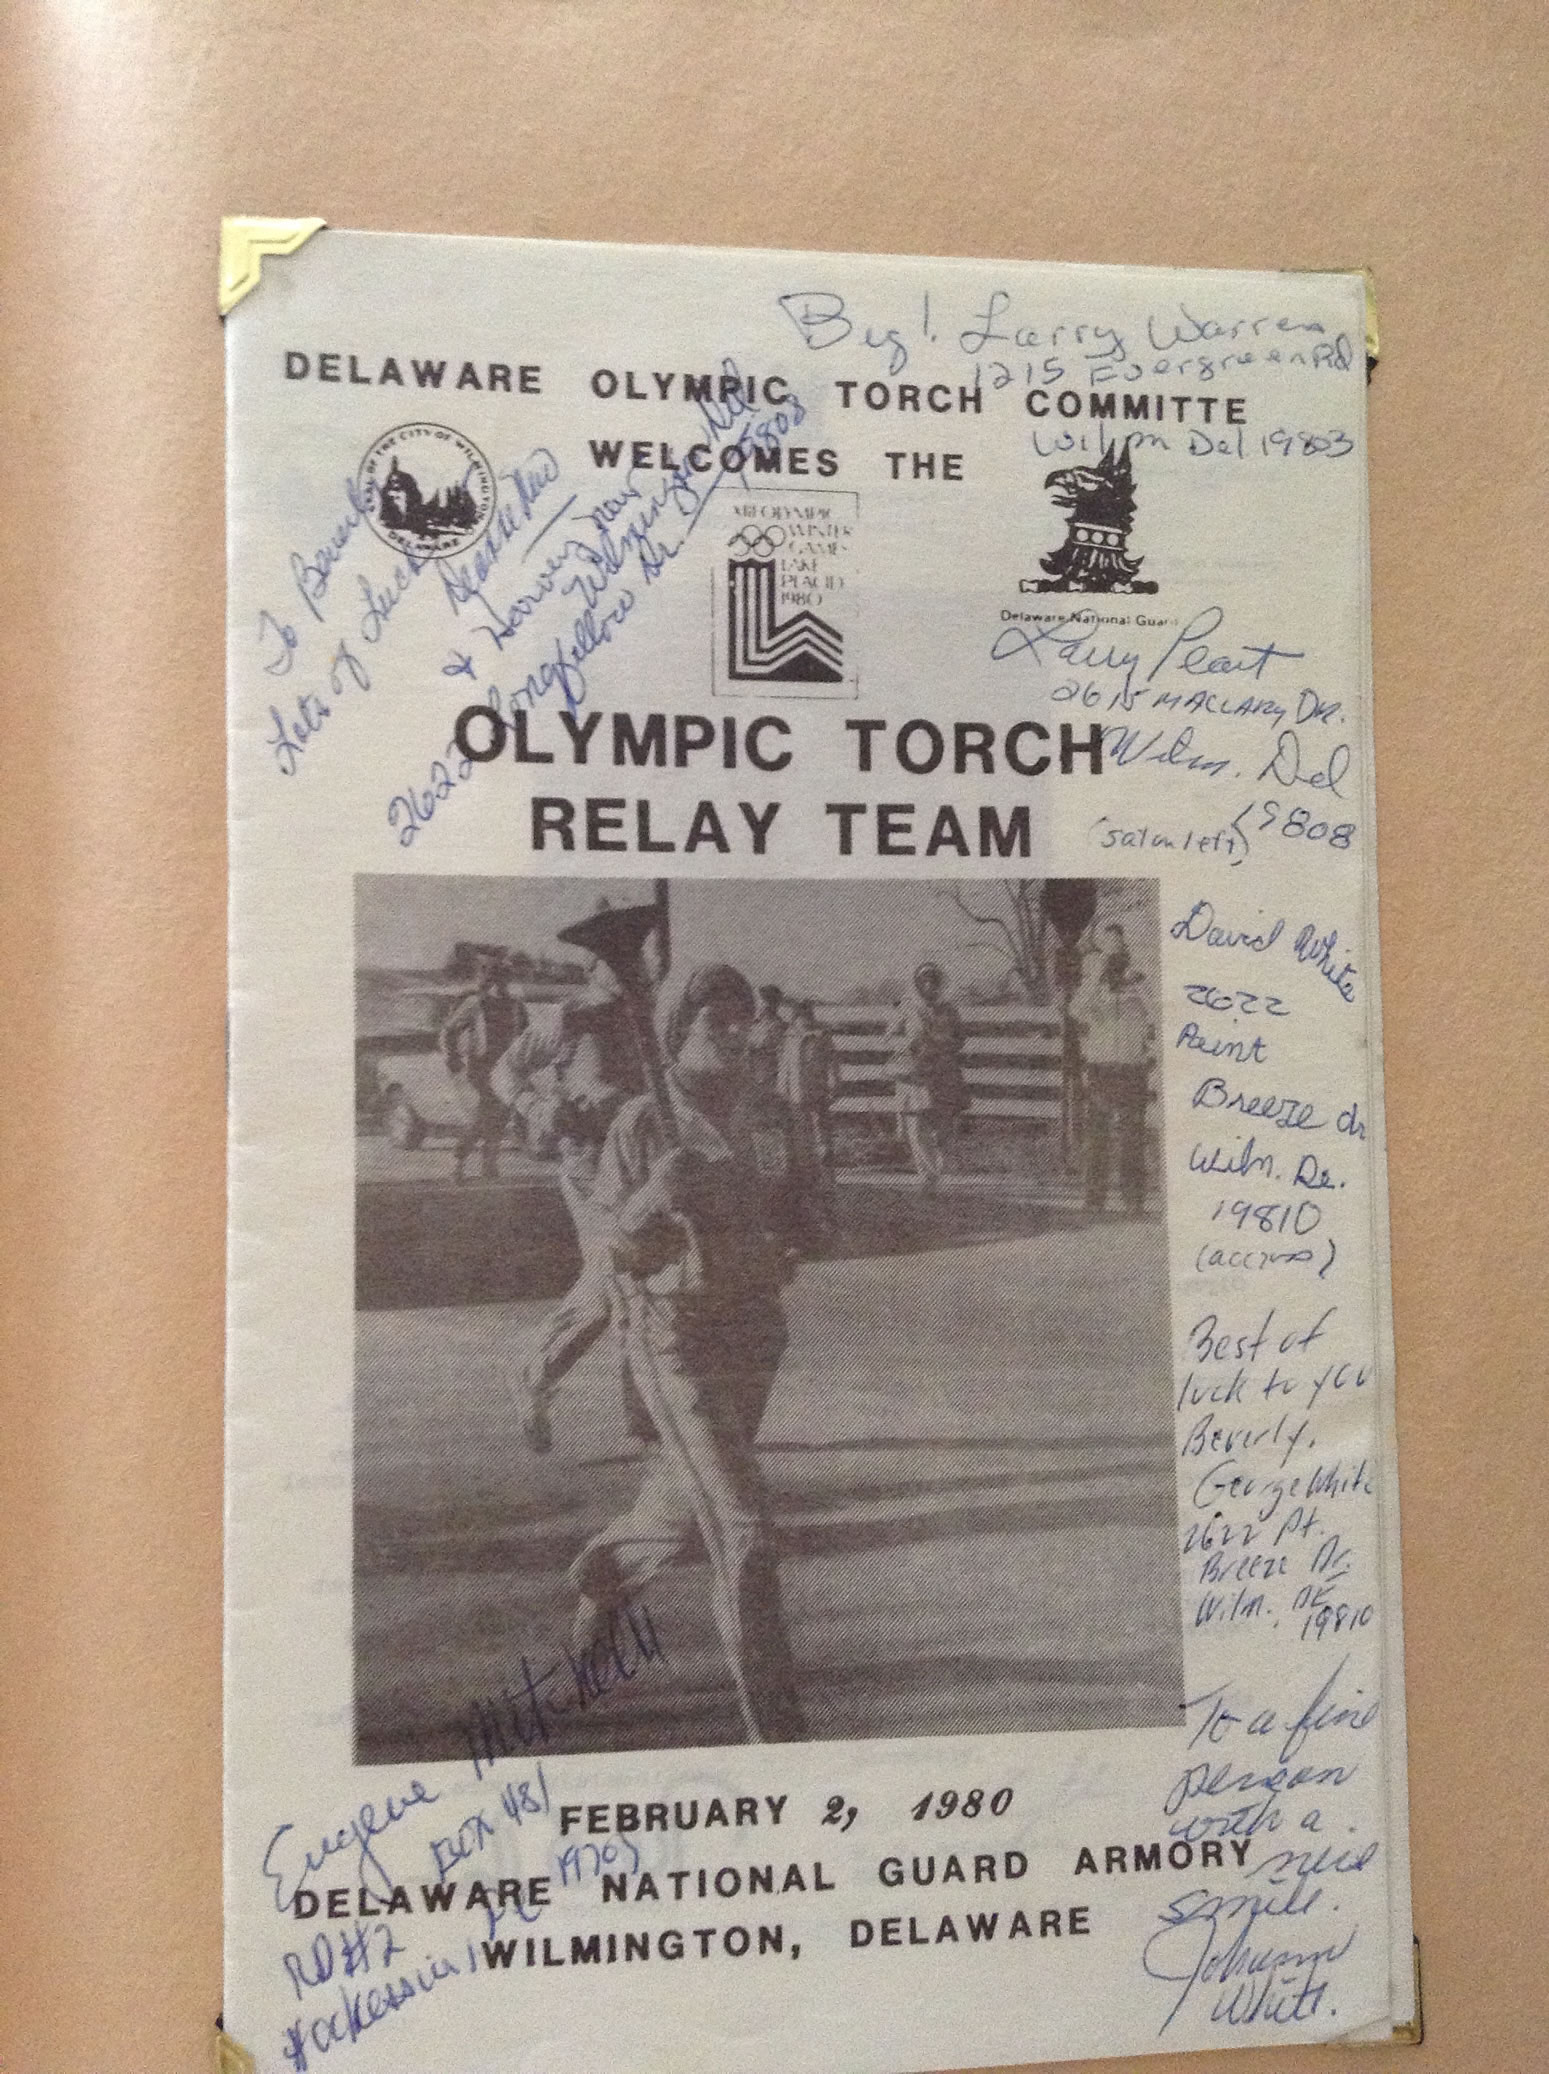 Larry Warren
1215 Evergreen Rd
Wilm Del 19803
DELAWARE OLYMPIC TORCH COMMITTE
WELCOMES THE
SEAL OF THE CITY OF WILMINGTON
DELAWARE
XIII OLYMPIC
WINTER
GAMES
LAKE
PLACID
1980
Delaware National Guard
To
Lots of Luck
& Harvey
2622 Longfellow Dr.
Wilmington Del
19808
Larry Peart
2615 MACLARY DR.
Wilm. Del
19808
(sat on left)
OLYMPIC TORCH
RELAY TEAM
David White
2622
Point
Breeze dr
Wilm. De.
19810
(across)
Best of
luck to you
Beverly.
George White
2622 Pt.
Breeze Dr.
Wilm. DE
19810
To a fine
person
with a
nice
smile.
Johanna
White.
Eugene Mitchell
RD#2 BOX 481
Hockessin
FEBRUARY 2, 1980
DELAWARE NATIONAL GUARD ARMORY
WILMINGTON, DELAWARE